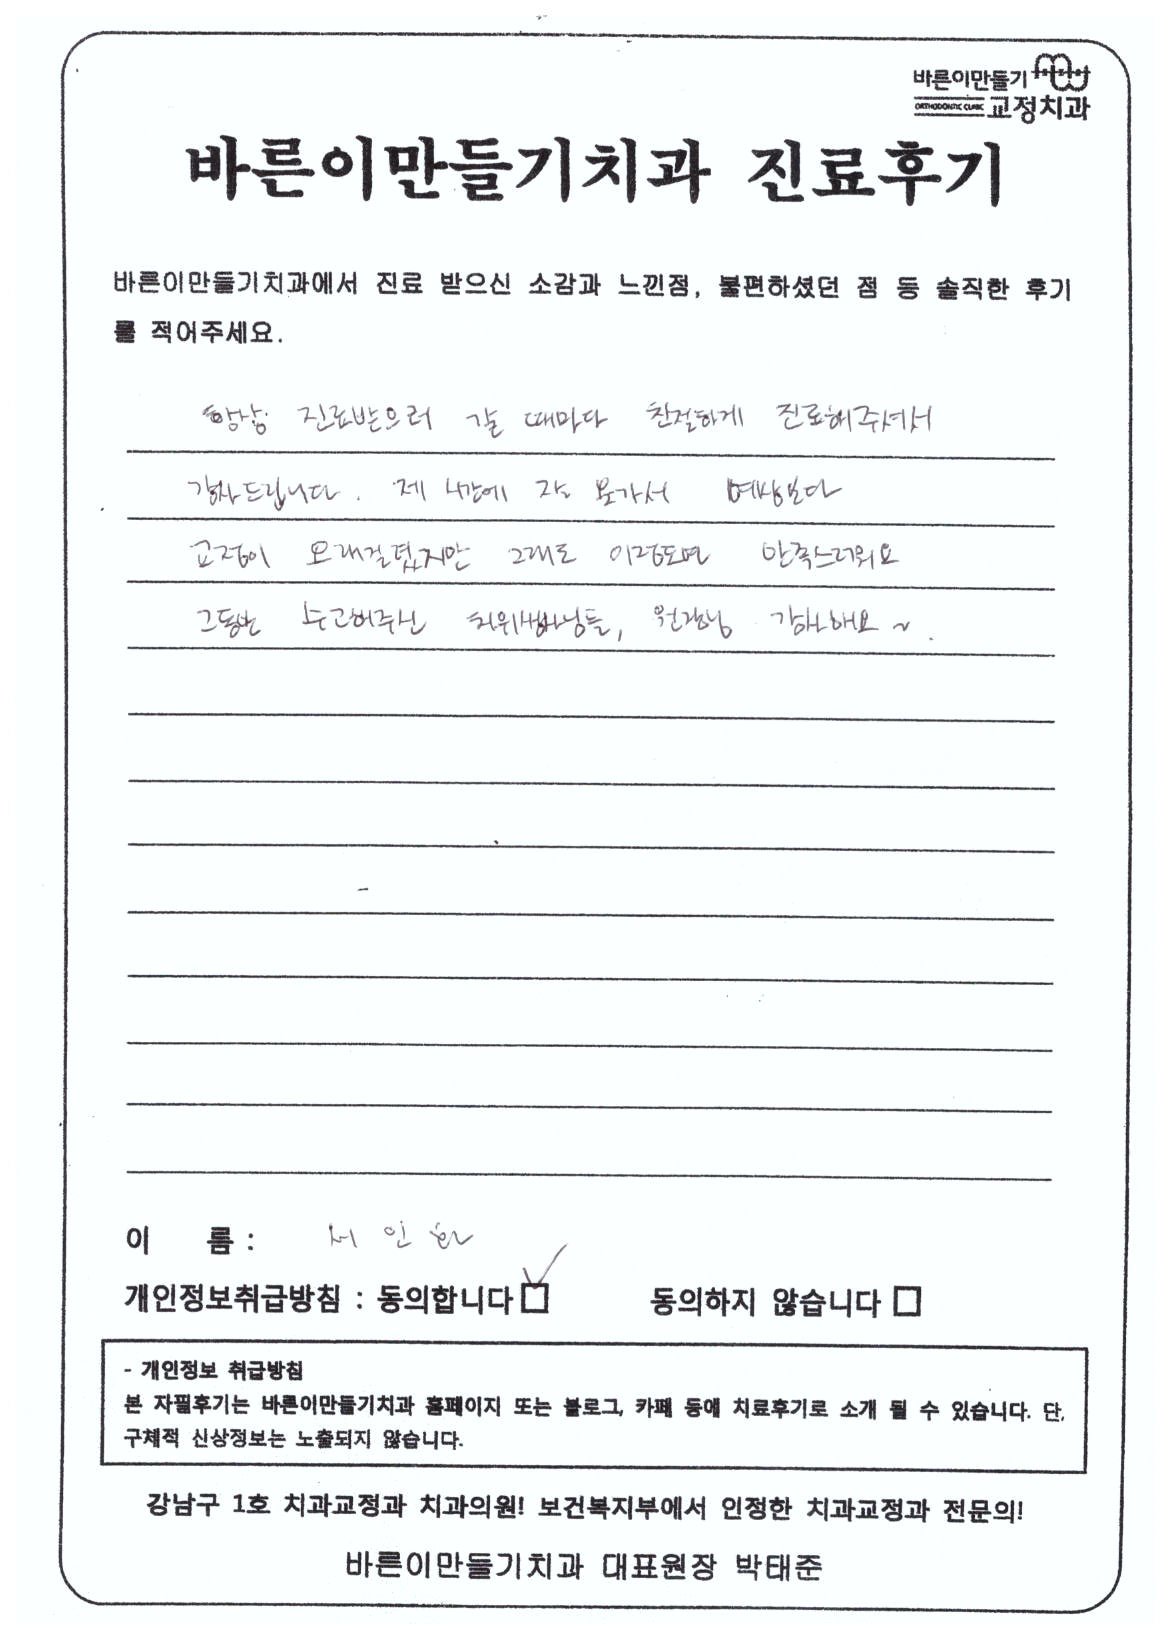 바른이만들기
ORTHODONTIC CLINIC 교정치과
바른이만들기치과 진료후기
바른이만들기치과에서 진료 받으신 소감과 느낀점, 불편하셨던 점 등 솔직한 후기
를 적어주세요.
항상 진료받으러 갈 때마다 친절하게 진료해주셔서
감사드립니다. 제 시간에 잘 못가서 예상보다
교정이 오래걸렸지만 그래도 이정도면 만족스러워요
그동안 수고해주신 치위생사님들, 원장님 감사해요~.
이 름 : 서인
개인정보취급방침 : 동의합니다 동의하지 않습니다
- 개인정보 취급방침
본 자필후기는 바른이만들기치과 홈페이지 또는 블로그, 카페 등에 치료후기로 소개 될 수 있습니다. 단,
구체적 신상정보는 노출되지 않습니다.
강남구 1호 치과교정과 치과의원! 보건복지부에서 인정한 치과교정과 전문의!
바른이만들기치과 대표원장 박태준